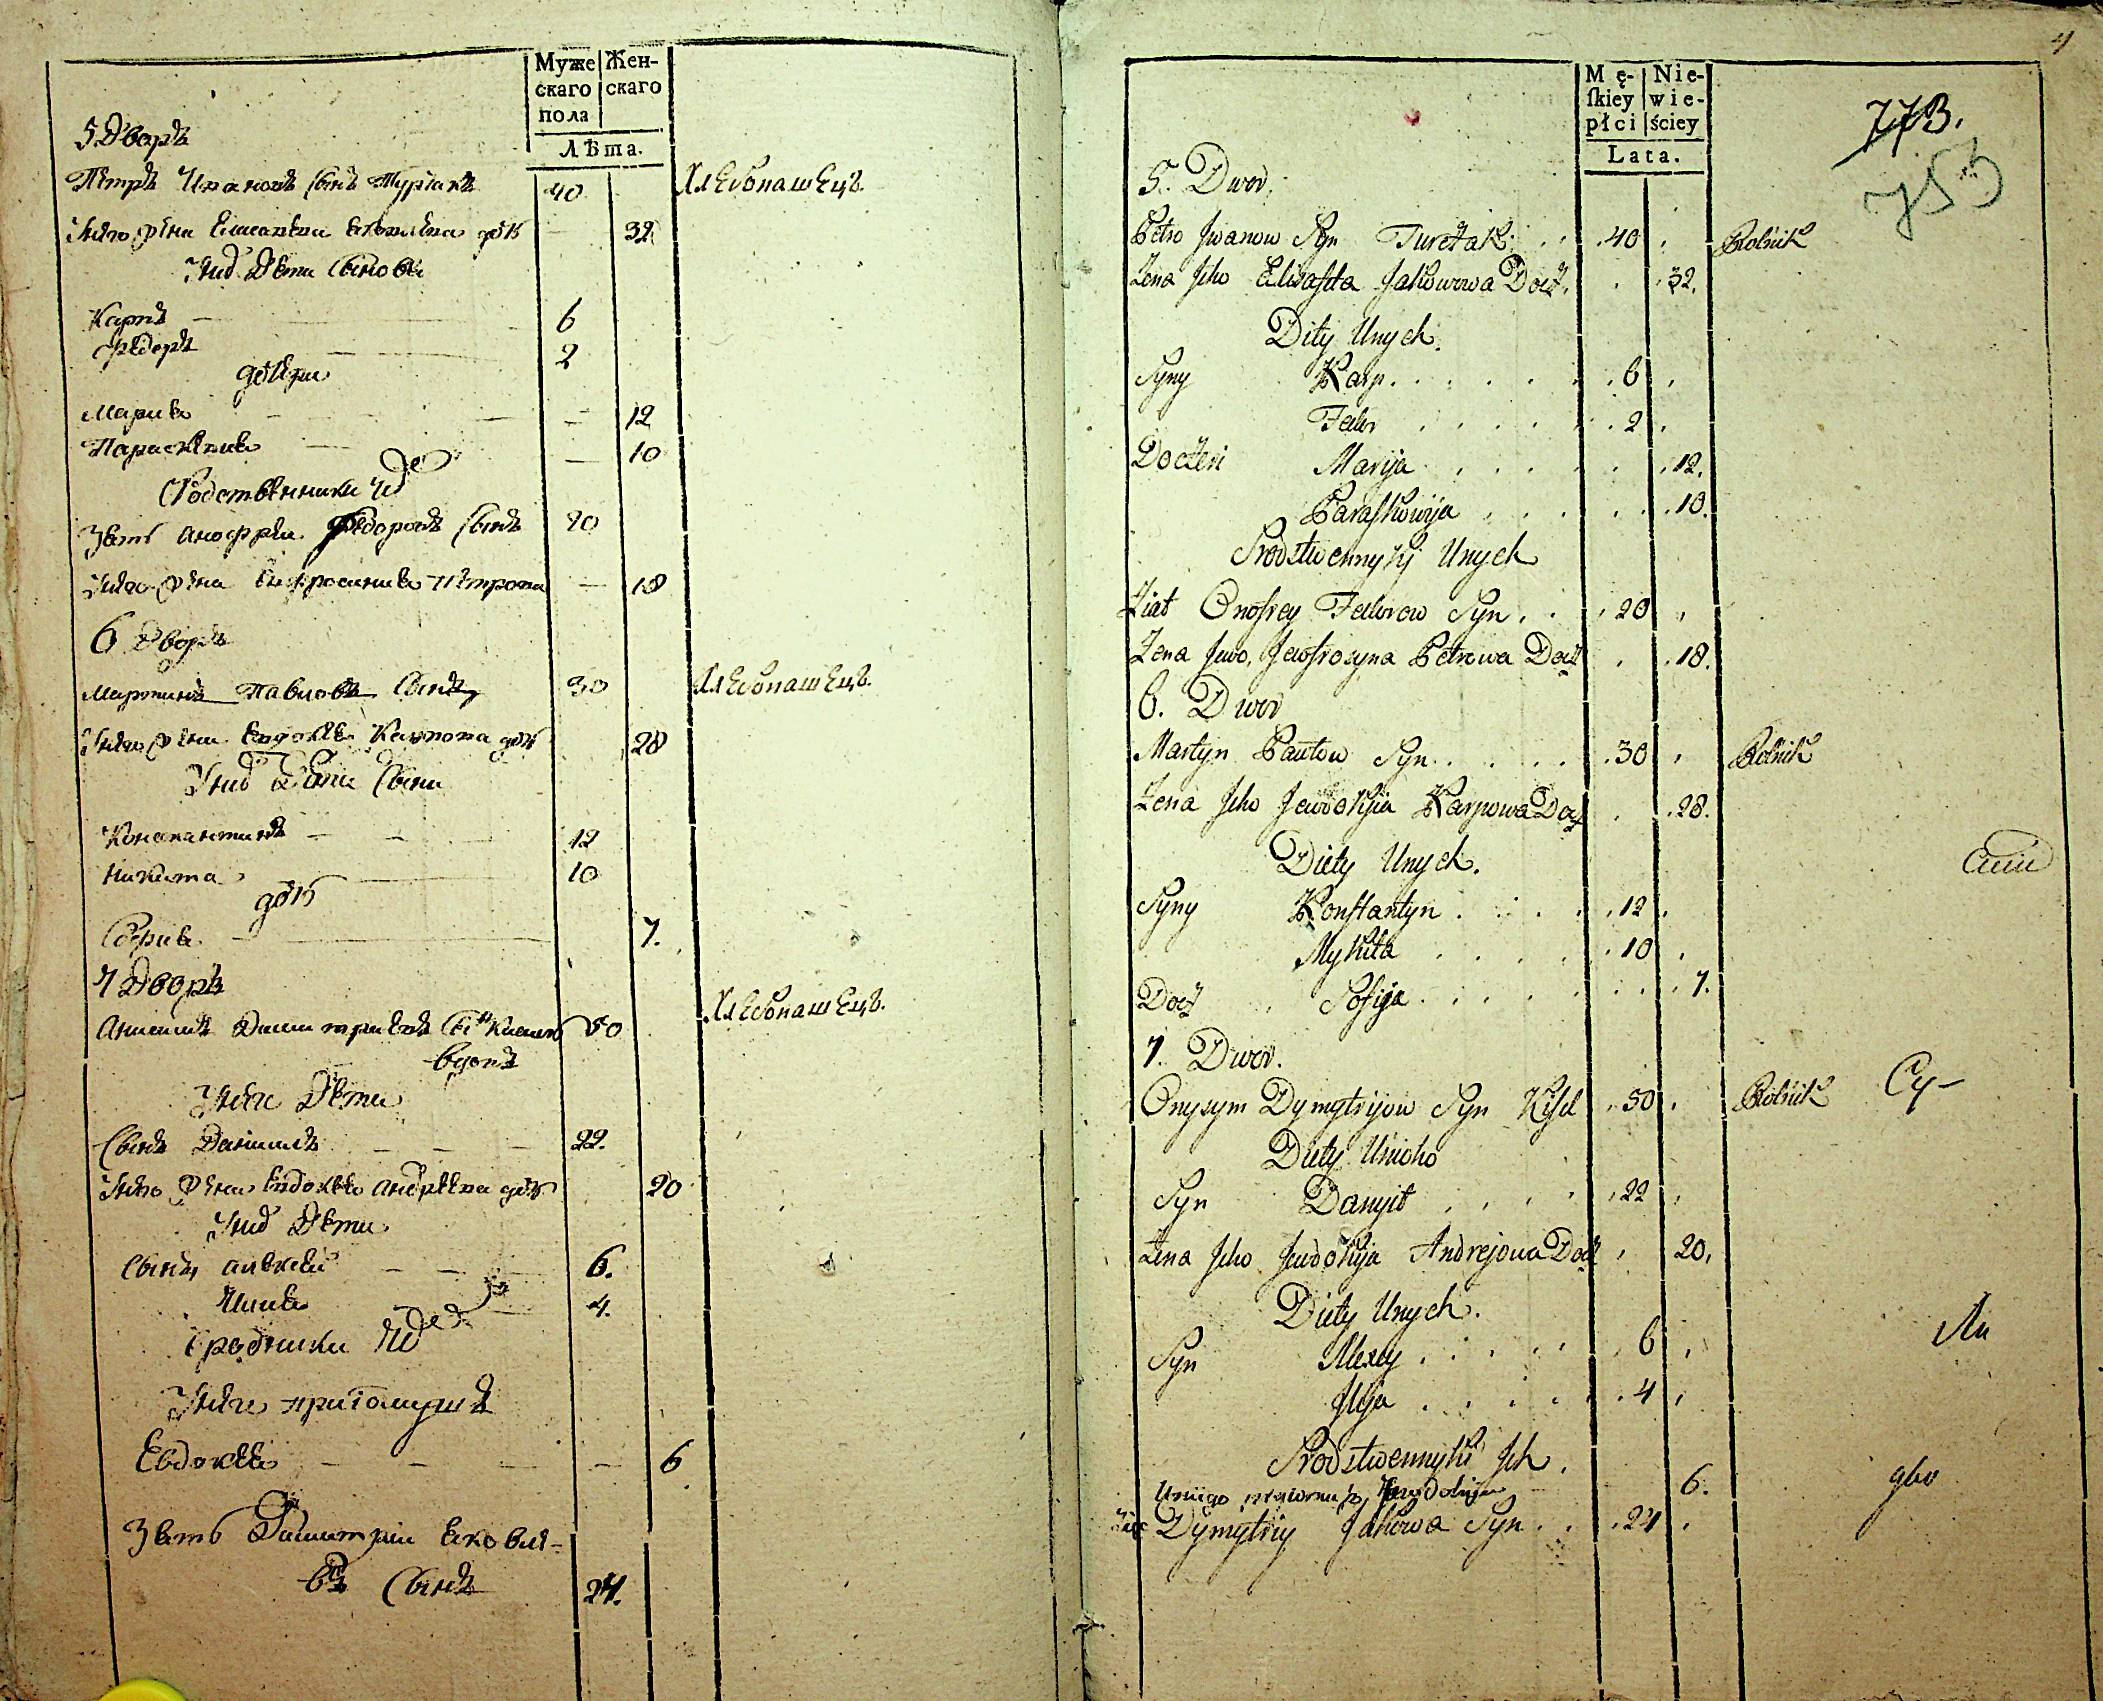 Муже
скаго
пола
Жен-
скаго
Лѣта.
5 Дворъ
Пѣтръ Ивановъ сынъ Турчакъ 40 Хлебопашецъ
Унего жена Елисавета Яковлева дочь 32
Уних Дети Сынове
Карпъ 6
Федоръ 2
дочери
Мария 12
Параскевия 10
Сродственники их
Зять Анофрей Федоровъ Сынъ 20
Унего жена Ефросиния Петрова 18
6 Дворъ
Мартинъ Павловъ Сынъ 30 Хлебопашецъ
Унего жена Евдокия Карпова дочь 28
Уних Дети Сыни
Константинъ 12
Никита 10
дочь
София 7.
7 Дворъ
Анисимъ Димитриевъ сынъ Кисель 50 Хлебопашецъ
вдовъ
Унего Дети
Сынъ Даниилъ 22.
Унего жена Евдокия Андреева дочь 20
Уних Дети
Сыны Алексей 6.
Илия 4.
Сродники их
Унего
Евдокия 6
Зять Димитрий Яковле-
въ Сынъ 24.
4
Mę-
ſkiey
płci
Nie-
wie-
ściey
Lata.
773.
753
5. Dwor.
Petro Jwanow Syn Turczak 40 Rolnik
Żena Jeho Elisaſeta Jakowowa Docz. 32.
Dity Unych.
Syny Karp 6
Fedor 2
Doczeri Marija 12.
Paraſkowija 10.
Srodstwennyky Unych
Ziat Onofrey Fedorow Syn. 20
Żena Jewo, Jewfrosyna Petrowa Docz 18.
6. Dwor
Martyn Pawłow Syn 30 Rolnik
Żena Jeho Jewdokija Karpowa Docz 28.
Diety Unych.
Syny Konſtantyn 12
Mykita 10
Docz Sofija 7.
7. Dwor.
Onysym Dymytryow Syn Kisel 50 Rolnik Су-
Diety Unioho
Syn Danyił 22
Żena Jeho Jewdokija Andrejowa Docz 20,
Diety Unych.
Syn Alexey 6
Jlija 4
Srodstwennyki Jch.
Uniigo Jewdokija 6.
Dymytriy Jakowa Syn 24